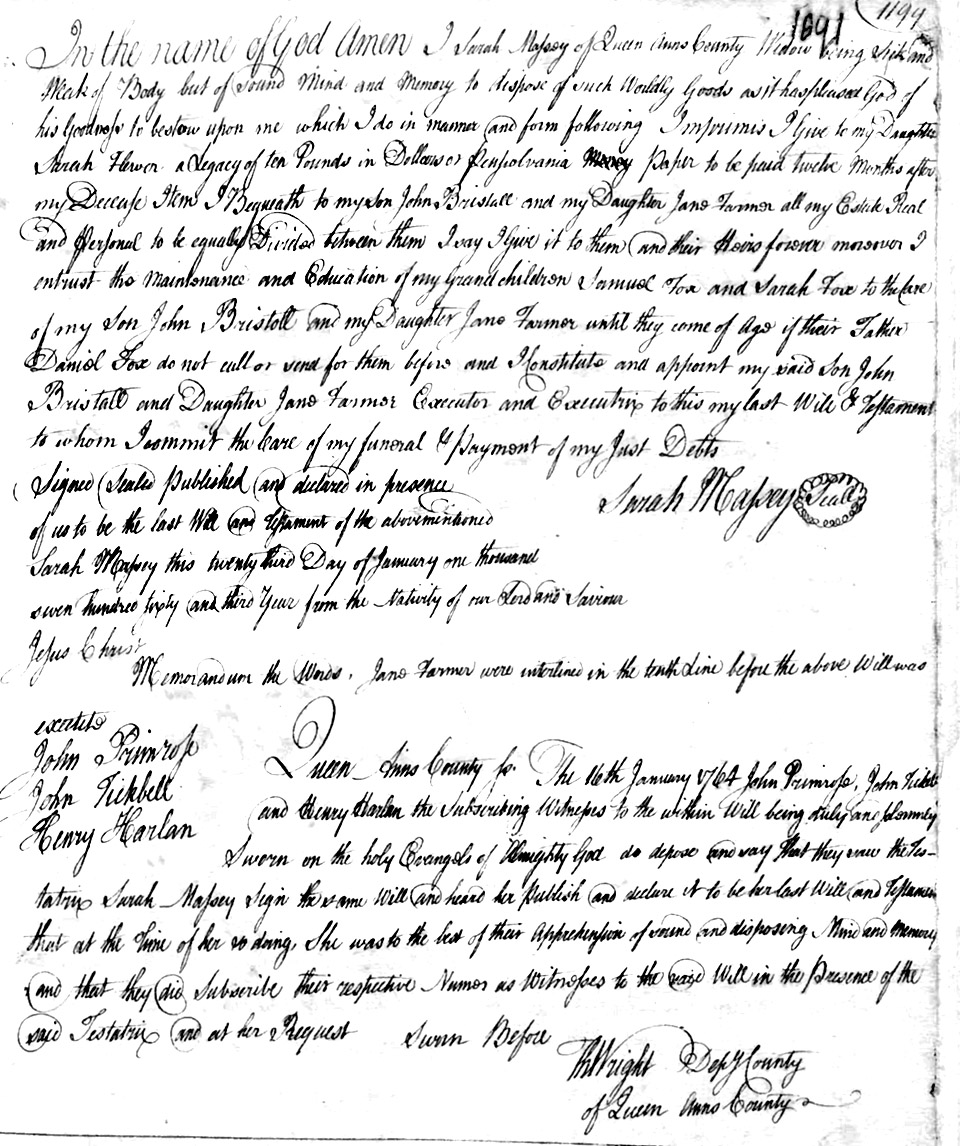 1691 1194
In the name of God Amen I Sarah Massey of Queen Anns County Widow being Sick and
Weak of Body but of Sound Mind and Memory to dispose of such Worldly Goods as it has pleased God of
his Goodness to bestow upon me which I do in manner and form following Imprimis I Give to my Daughter
Sarah a Legacy of ten Pounds in Dollars or Pensylvania Paper to be paid twelve Months after
my Decease Item I Bequeath to my son John Bristoll and my Daughter Jane Farmer all my Estate Real
and Personal to be equally Divided between them I say I Give it to them and their Heirs forever moreover I
entrust the Maintenance and Education of my Grand children Samuel Fox and Sarah Fox to the Care
of my Son John Bristoll and my Daughter Jane Farmer until they come of Age if their Father
Daniel Fox do not call or send for them before and I Constitute and appoint my said Son John
Bristoll and Daughter Jane Farmer Executor and Executrix to this my last Will & Testament
to whom I commit the Care of my funeral & Payment of my Just Debts
Signed Sealed Published and declared in presence
Sarah Massey Seal
of us to be the last Will and Testament of the abovementioned
Sarah Massey this twenty third Day of January one thousand
seven hundred sixty and third Year from the Nativity of our Lord and Saviour
Jesus Christ
Memorandum the Words, Jane Farmer were interlined in the tenth Line before the above Will was
John Primrose
John Tickbell
Henry Harlan
Queen Anns County ss. The 16th January 1764 John Primrose, John
and Henry Harlan the Subscribing Witnesses to the within Will being duly and solemnly
Sworn on the holy Evangels of Almighty God do depose and say that they saw the Tes-
tatrix Sarah Massey Sign the same Will and heard her Publish and declare it to be her last Will and Testament
that at the Time of her so doing, She was to the best of their Apprehension of sound and disposing Mind and Memory
and that they did Subscribe their respective Names as Witnesses to the said Will in the Presence of the
said Testatrix and at her Request Sworn Before
Th Wright Depy County
of Queen Anns County